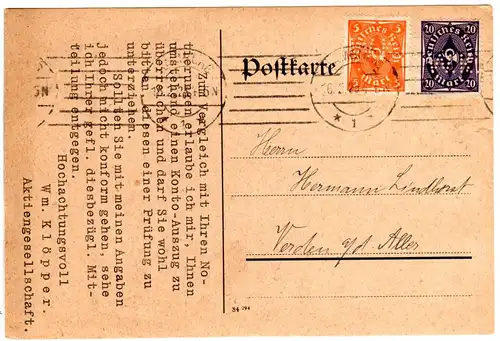 Zum Vergleich mit Ihren No-
tierungen erlaube ich mir, Ihnen
umstehend einen Konto-Auszug zu
überreichen und darf Sie wohl
bitten, diesen einer Prüfung zu
unterziehen.
Sollten Sie mit meinen Angaben
jedoch nicht konform gehen, sehe
ich Ihrer gefl. diesbezügl. Mit-
teilung entgegen.
Hochachtungsvoll
Wm. Klöpper.
Aktiengesellschaft.
Postkarte
5 5
Mark
Deutsches Reich
20 20
Mark
* 1 *
Herrn
Hermann Lindhorst
Verden a/d Aller
34 294